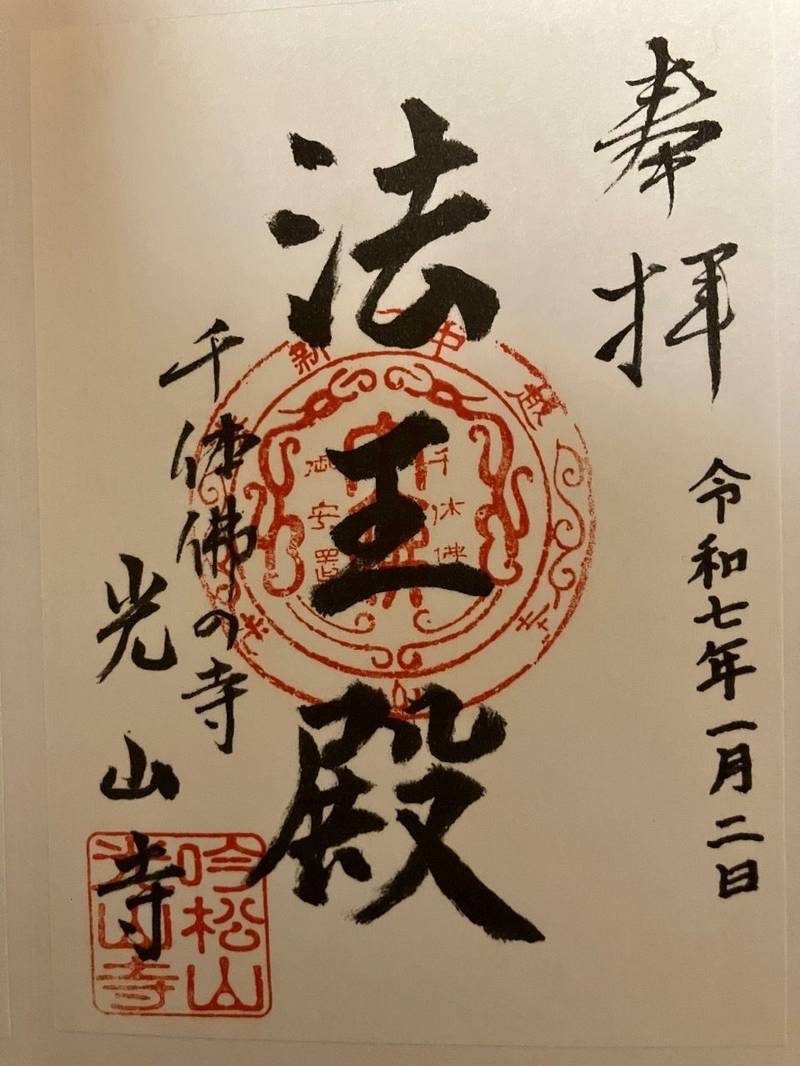 奉拝
令和七年一月二日
法王殿
千体佛の寺
光山寺
千体佛
御安置
吟松山
光山寺